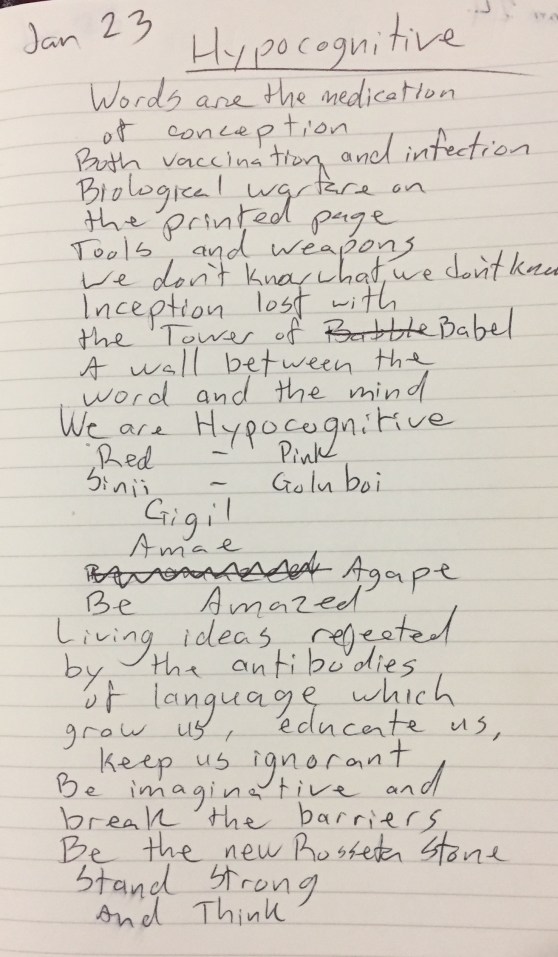 Jan 23
Hypocognitive
Words are the medication
of conception
Both vaccination and infection
Biological warfare on
the printed page
Tools and weapons
We don't know what we don't know
Inception lost with
the Tower of Babble Babel
A wall between the
word and the mind
We are Hypocognitive
Red - Pink
Sinii - Goluboi
Gigil
Amae
Agape
Be Amazed
Living ideas rejected
by the antibodies
of language which
grow us, educate us,
keep us ignorant
Be imaginative and
break the barriers
Be the new Rosseta Stone
Stand Strong
And Think